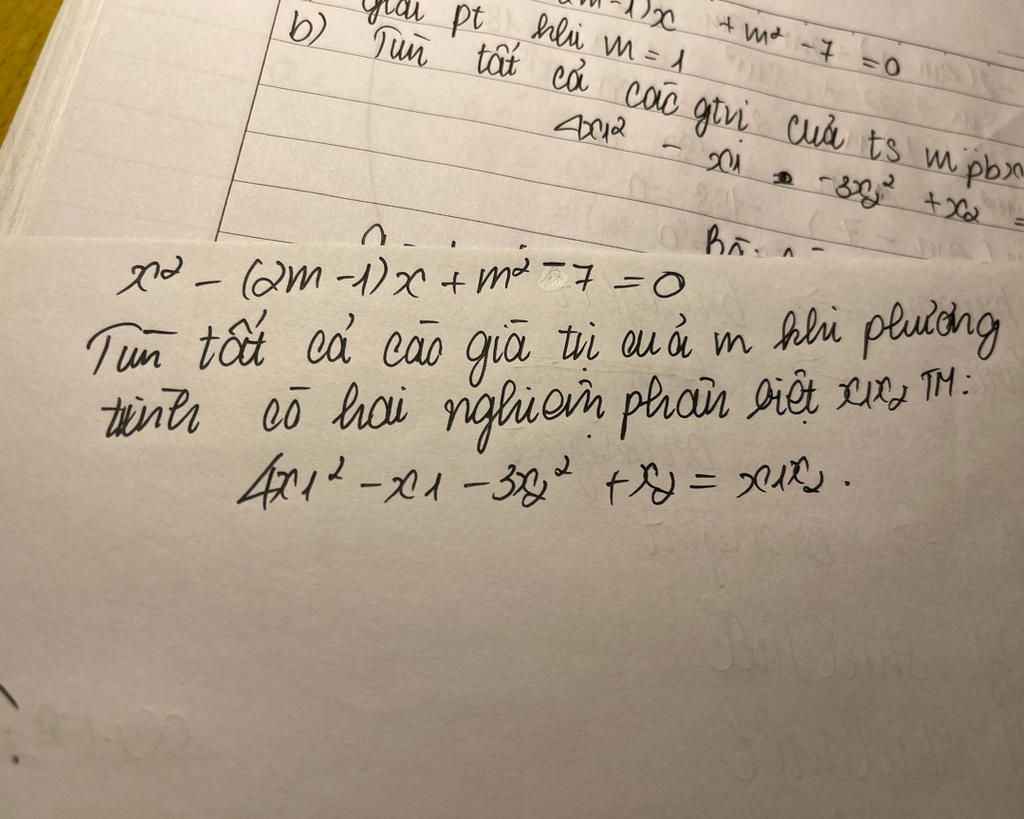 2m-1)x + m² - 7 = 0
giải pt khi m = 1
b) Tìm tất cả các gtri của ts m pbx
4x1² - x1 - 3x2² + x2 =
x² - (2m - 1)x + m² - 7 = 0
Tìm tất cả các giá trị của m khi phương
trình có hai nghiệm phân biệt x1x2 TM:
4x1² - x1 - 3x2² + x2 = x1x2.